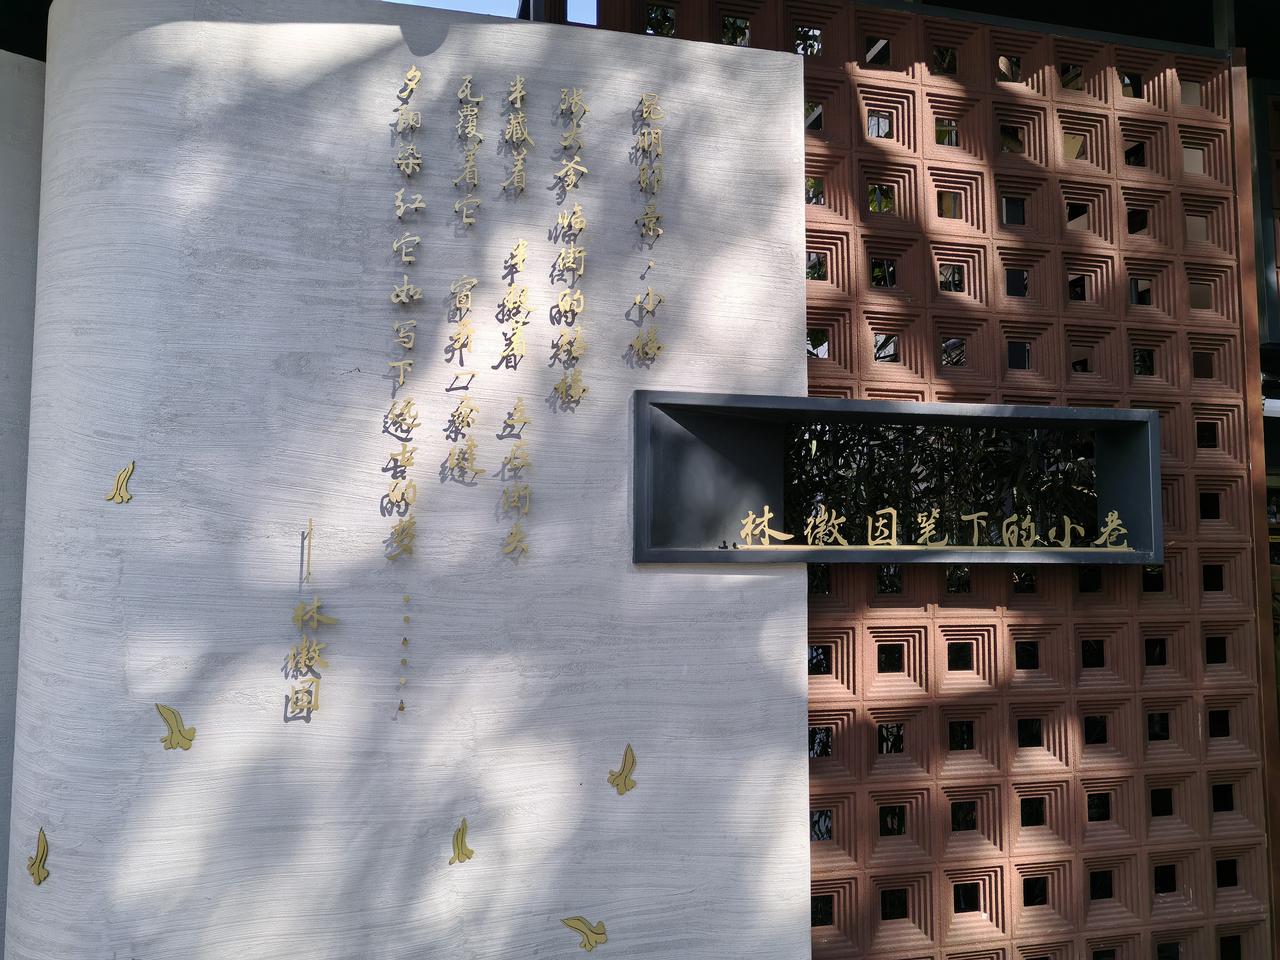 昆明即景·小楼
张大爹临街的矮楼
半藏着 半挺着 立在街头
瓦覆着它 窗开一条缝
夕阳染红它如写下远古的梦……
——林徽因
林徽因笔下的小巷